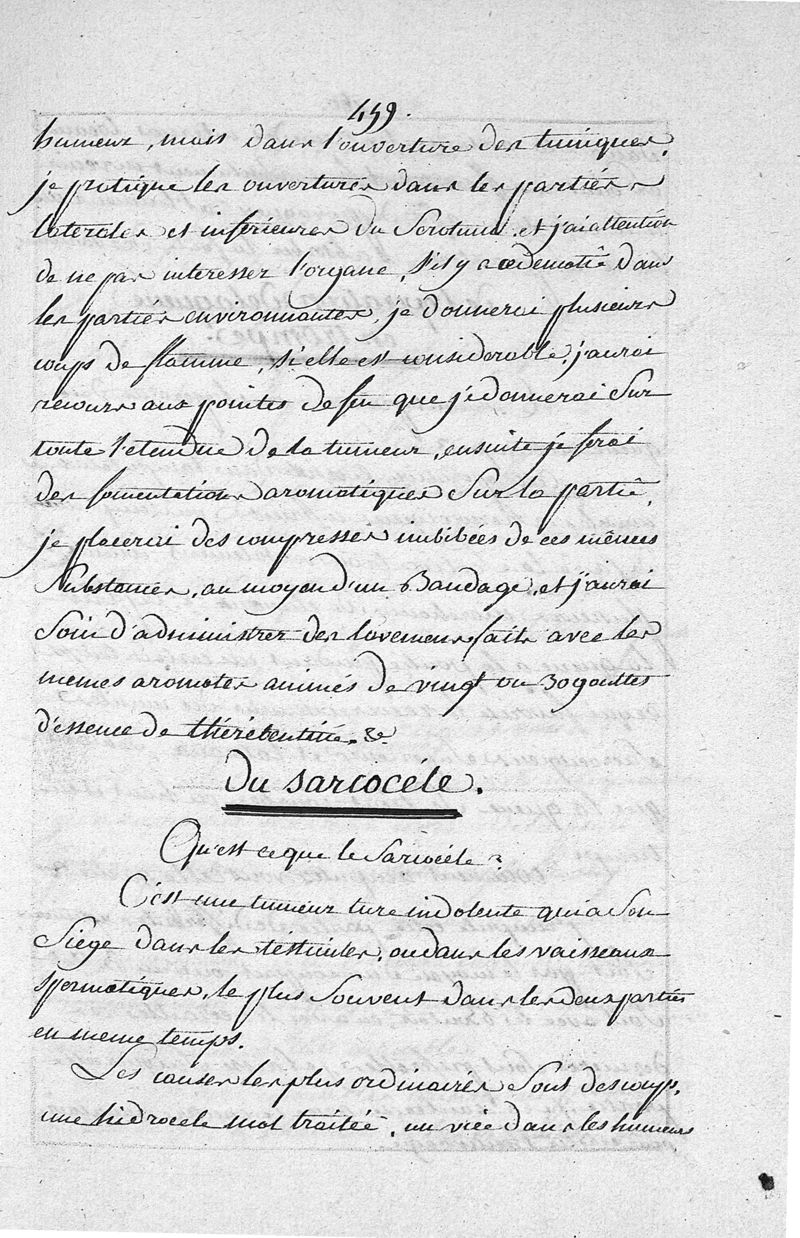 459.
humeur, mais dans l'ouverture des tuniques.
je pratique les ouvertures dans les parties
laterales et inférieures du Scrotum. et j'ai attention
de ne pas interesser l'organe, s'il y a œdematié dans
les parties environnantes, je donnerai plusieurs
coups de flamme, si elle est considerable, j'aurai
recours aux pointes de feu que je donnerai Sur
toute l'etendue de la tumeur, ensuite je ferai
des fomentations aromatiques Sur la partie.
je placerai des compresses imbibées de ces mêmes
Substances, au moyen d'un Bandage, et j'aurai
Soin d'administrer des lavemens faits avec les
memes aromates animés de vingt ou 30 gouttes
d'essence de thérébentine. &c.
Du sarcocéle.
Qu'est ce que le Sarcocéle?
C'est une tumeur ture indolente qui a Son
Siege dans les testicules, ou dans les vaisseaux
spermatiques, le plus Souvent dans les deux parties
en meme temps.
Les causes les plus ordinaires Sont des coups,
une hidrocele mal traitée, un vice dans les humeurs